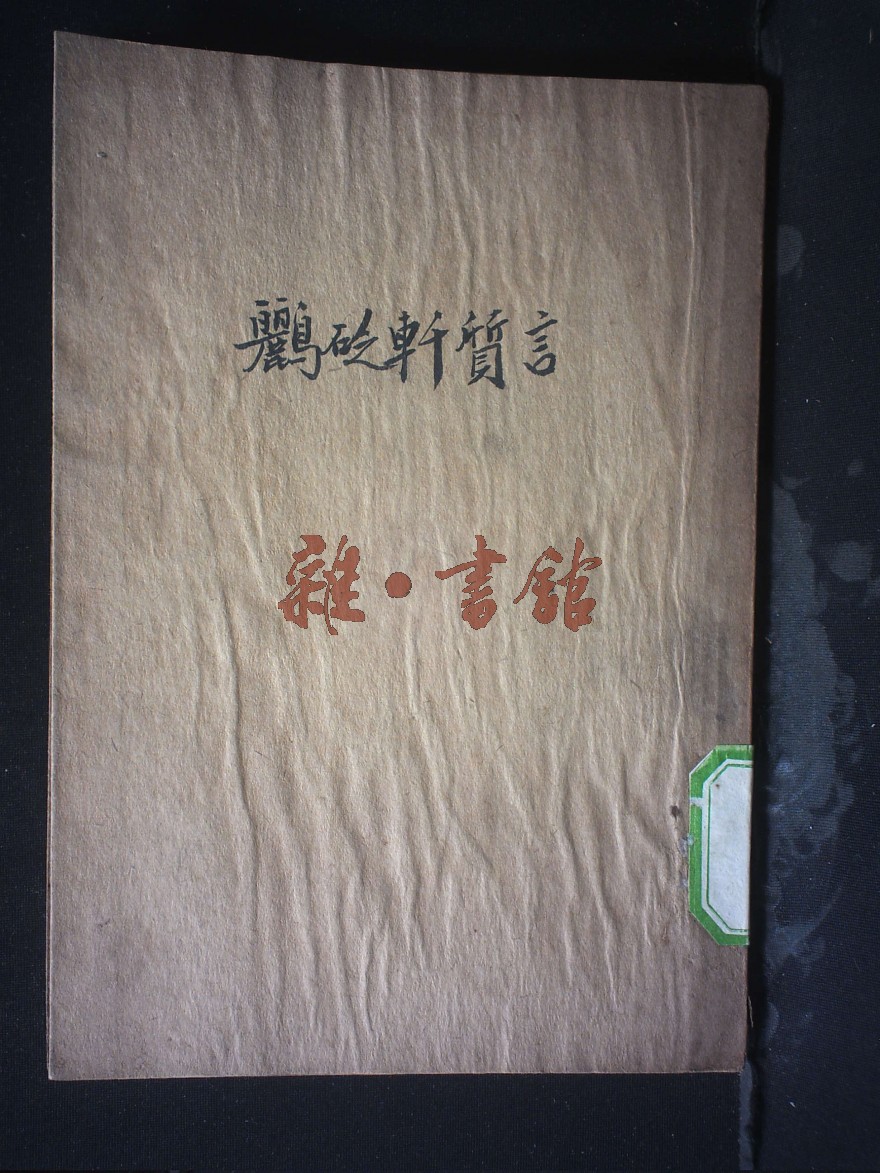 鸝砭軒質言
雜·書館